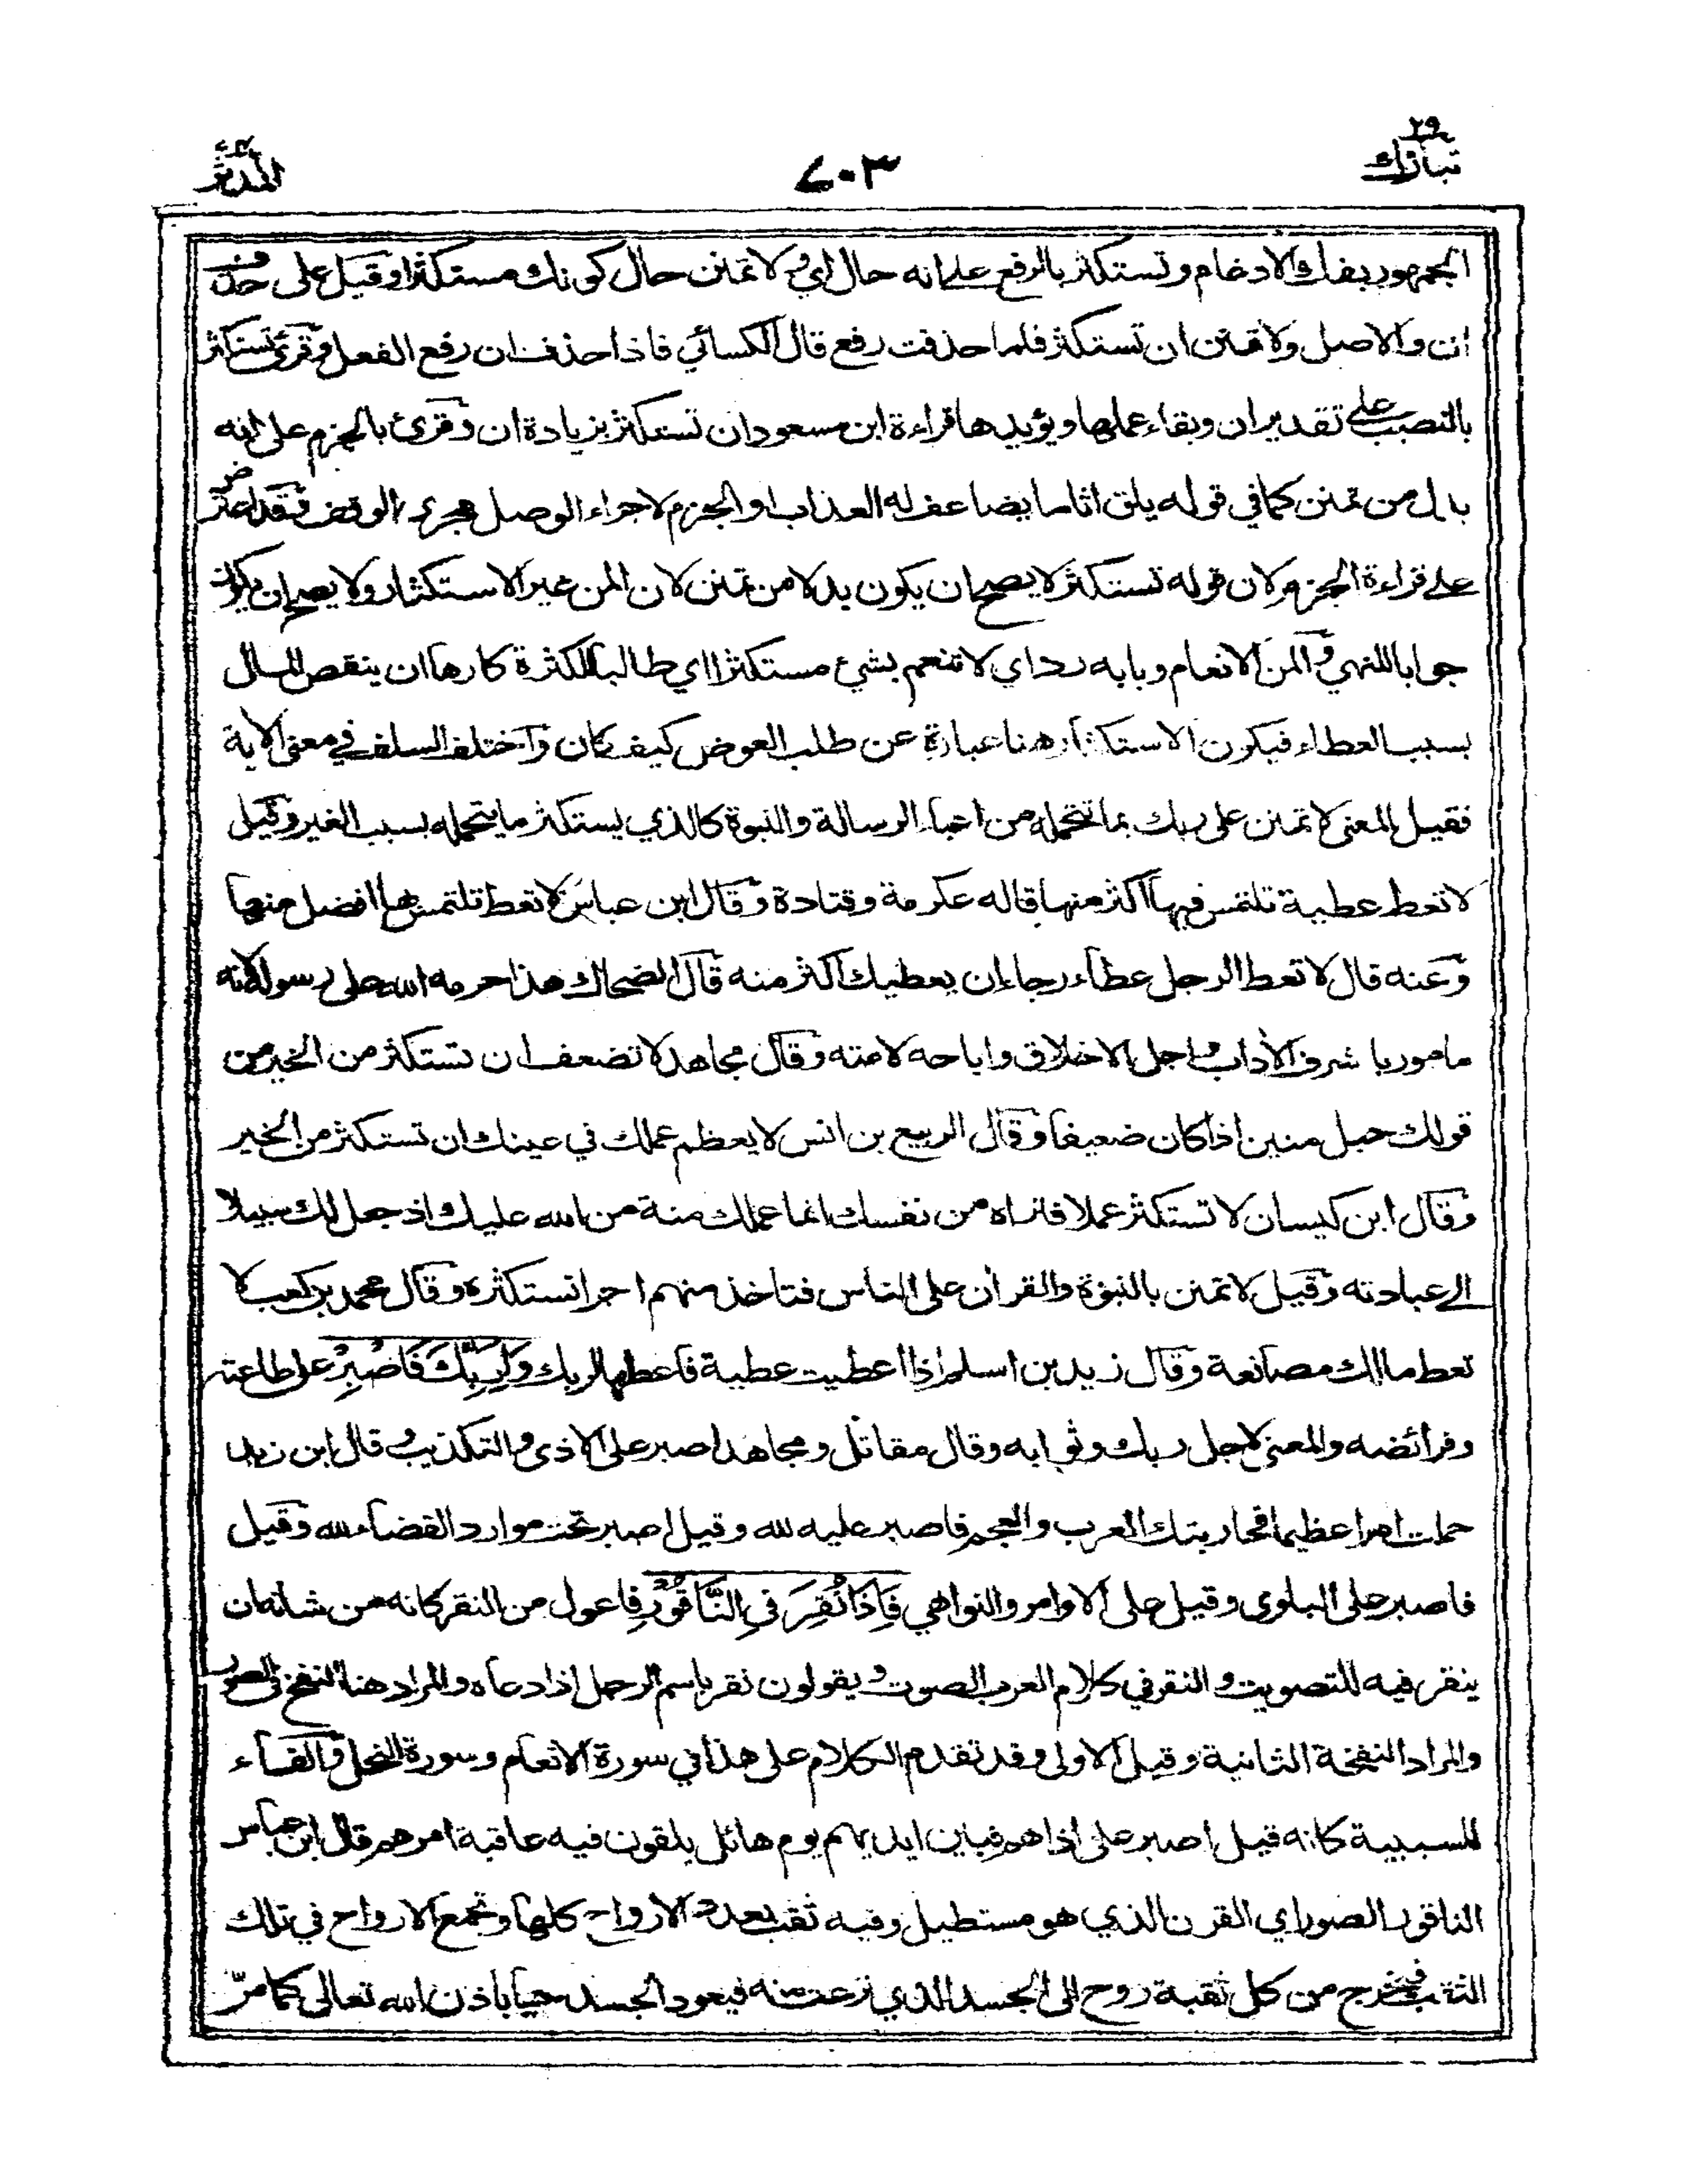 تبارك ٢٩
٧٠٣
المدثر
الجمهور بفك الادغام وتستكثر بالرفع على انه حال اي ولا تمنن حال كونك مستكثرا وقيل على حذف
ان والاصل ولا تمنن ان تستكثر فلما حذفت رفع قال الكسائي فاذا حذف ان رفع الفعل وقرئ تستكثر
بالنصب على تقدير ان وبقاء عملها ويؤيدها قراءة ابن مسعود ان تستكثر بزيادة ان وقرئ بالجزم على انه
بدل من تمنن كما في قوله يلق اثاما يضاعف له العذاب او الجزم لاجراء الوصل مجرى الوقف وقد اعترض
على قراءة الجزم لان قوله تستكثر لا يصح ان يكون بدلا من تمنن لان المن غير الاستكثار ولا يصح ان يكون
جوابا للنهي و المن الانعام وبابه رد اي لا تنعم بشئ مستكثرا اي طالبا للكثرة كارها ان ينقص المال
بسبب العطاء فيكون الاستكثار هنا عبارة عن طلب العوض كيف كان واختلف السلف في معنى الآية
فقيل المعنى لا تمنن على ربك بما تتحمله من اعباء الرسالة والنبوة كالذي يستكثر ما يتحمله بسبب الغير وقيل
لا تعط عطية تلتمس فيها اكثر منها قاله عكرمة وقتادة وقال ابن عباس لا تعط تلتمس بها افضل منها
وعنه قال لا تعط الرجل عطاء رجاء ان يعطيك اكثر منه قال الضحاك هذا حرمه الله على رسوله لانه
مامور باشرف الآداب واجل الاخلاق واباحه لامته وقال مجاهد لا تضعف ان تستكثر من الخير من
قولك حبل منين اذا كان ضعيفا وقال الربيع بن انس لا يعظم عملك في عينك ان تستكثر من الخير
وقال ابن كيسان لا تستكثر عملا فتراه من نفسك انما عملك منة من الله عليك اذ جعل لك سبيلا
الى عبادته وقيل لا تمنن بالنبوة والقرآن على الناس فتاخذ منهم اجرا تستكثره وقال محمد بن كعب لا
تعط مالك مصانعة وقال زيد بن اسلم اذا اعطيت عطية فاعطها لربك وَلِرَبِّكَ فَاصْبِرْ على طاعته
وفرائضه والمعنى لاجل ربك وثوابه وقال مقاتل ومجاهد اصبر على الاذى والتكذيب وقال ابن زيد
حملت امرا عظيما فحاربتك العرب والعجم فاصبر عليه لله وقيل اصبر تحت موارد القضاء لله وقيل
فاصبر على البلوى وقيل على الاوامر والنواهي فَإِذَا نُقِرَ فِي النَّاقُورِ فاعول من النقر كانه من شانه ان
ينقر فيه للتصويت و النقر في كلام العرب الصوت ويقولون نقر باسم الرجل اذا دعاه والمراد هنا النفخ في الصور
والمراد النفخة الثانية وقيل الاولى وقد تقدم الكلام على هذا في سورة الانعام وسورة النحل و الفاء
للسببية كانه قيل اصبر على اذاهم فبين ايديهم يوم هائل يلقون فيه عاقبة امرهم قال ابن عباس
الناقور الصور اي القرن الذي هو مستطيل وفيه ثقب بعدد الارواح كلها وتجمع الارواح في تلك
الثقب فيخرج من كل ثقبة روح الى الجسد الذي نزعت منه فيعود الجسد حيا باذن الله تعالى كما مرّ